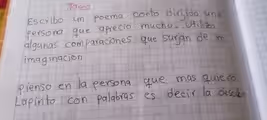 Tarea
Escribo un Poema corto dirijido una
persona que aprecio mucho. Utilizo
algunas comparaciones que surjan de m
imaginación
pienso en la persona que mas quiero
Lapinto con palabras es decir la